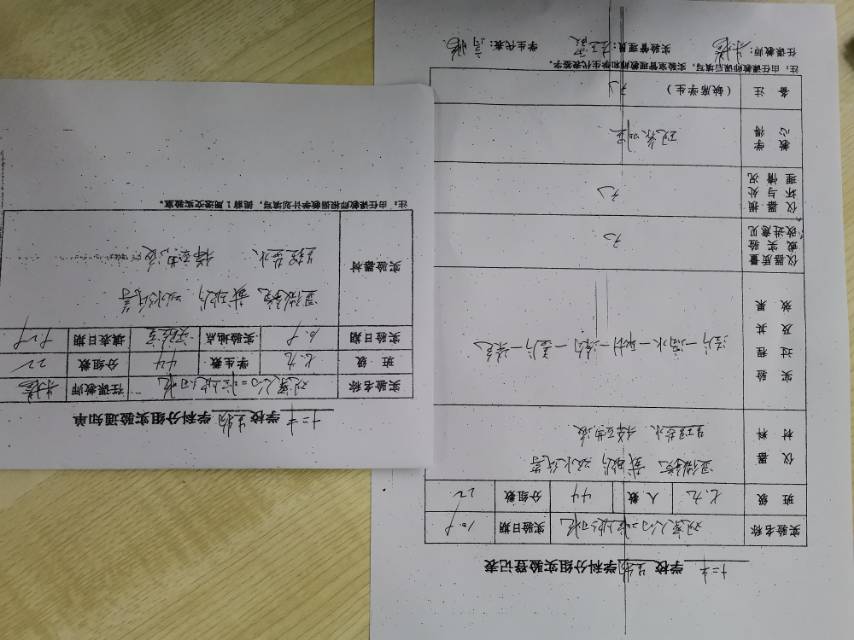 十二中 学校 生物 学科分组实验通知单
实验名称 观察人的口腔上皮细胞 任课教师
班级 七.九 学生数 44 分组数 22
实验日期 实验地点 实验室 填表日期
实验器材 显微镜 载玻片 吸水纸等
生理盐水 稀碘液
注：由任课教师根据教学计划填写，提前1周送交实验室。
十二中 学校 生物 学科分组实验登记表
实验名称 观察人的口腔上皮细胞 实验日期
班级 七.九 人数 44 分组数 22
仪器材料 显微镜 载玻片 吸水纸等
生理盐水 稀碘液
实验过程及其效果
仪器质量或实验改进意见 无
仪器损坏与处理情况 无
教学心得
备注 （缺席学生） 无
注：由任课教师课后填写，实验室管理教师和学生代表签字。
任课教师： 实验管理员： 学生代表：